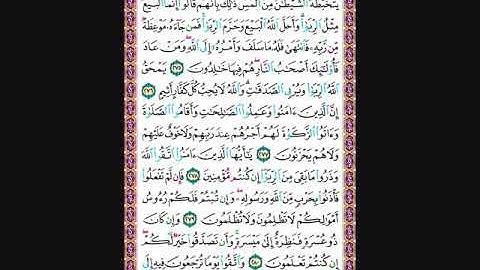 يَتَخَبَّطُهُ الشَّيْطَٰنُ مِنَ الْمَسِّ ذَٰلِكَ بِأَنَّهُمْ قَالُوٓا۟ إِنَّمَا الْبَيْعُ
مِثْلُ الرِّبَوٰا۟ وَأَحَلَّ اللَّهُ الْبَيْعَ وَحَرَّمَ الرِّبَوٰا۟ فَمَن جَآءَهُۥ مَوْعِظَةٌ
مِّن رَّبِّهِۦ فَانتَهَىٰ فَلَهُۥ مَا سَلَفَ وَأَمْرُهُۥٓ إِلَى اللَّهِ وَمَنْ عَادَ
فَأُو۟لَٰٓئِكَ أَصْحَٰبُ النَّارِ هُمْ فِيهَا خَٰلِدُونَ ٢٧٥ يَمْحَقُ
اللَّهُ الرِّبَوٰا۟ وَيُرْبِى الصَّدَقَٰتِ وَاللَّهُ لَا يُحِبُّ كُلَّ كَفَّارٍ أَثِيمٍ ٢٧٦
إِنَّ الَّذِينَ ءَامَنُوا۟ وَعَمِلُوا۟ الصَّٰلِحَٰتِ وَأَقَامُوا۟ الصَّلَوٰةَ
وَءَاتَوُا۟ الزَّكَوٰةَ لَهُمْ أَجْرُهُمْ عِندَ رَبِّهِمْ وَلَا خَوْفٌ عَلَيْهِمْ
وَلَا هُمْ يَحْزَنُونَ ٢٧٧ يَٰٓأَيُّهَا الَّذِينَ ءَامَنُوا۟ اتَّقُوا۟ اللَّهَ
وَذَرُوا۟ مَا بَقِىَ مِنَ الرِّبَوٰٓا۟ إِن كُنتُم مُّؤْمِنِينَ ٢٧٨ فَإِن لَّمْ تَفْعَلُوا۟
فَأْذَنُوا۟ بِحَرْبٍ مِّنَ اللَّهِ وَرَسُولِهِۦ وَإِن تُبْتُمْ فَلَكُمْ رُءُوسُ
أَمْوَٰلِكُمْ لَا تَظْلِمُونَ وَلَا تُظْلَمُونَ ٢٧٩ وَإِن كَانَ
ذُو عُسْرَةٍ فَنَظِرَةٌ إِلَىٰ مَيْسَرَةٍ وَأَن تَصَدَّقُوا۟ خَيْرٌ لَّكُمْ
إِن كُنتُمْ تَعْلَمُونَ ٢٨٠ وَاتَّقُوا۟ يَوْمًا تُرْجَعُونَ فِيهِ إِلَى